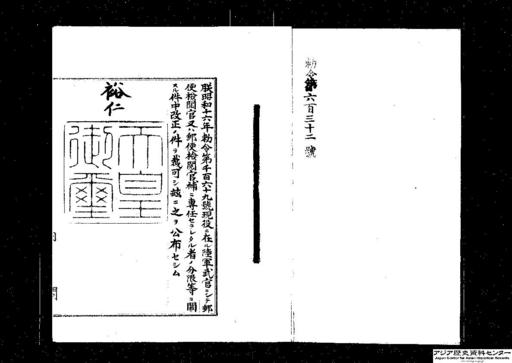 勅令第六百三十二號
朕昭和十六年勅令第千百六十九號現役ニ在ル陸軍武官ニシテ郵
便檢閲官又ハ郵便檢閲官補ニ專任セラレタル者ノ分限等ニ關
スル件中改正ノ件ヲ裁可シ茲ニ之ヲ公布セシム
裕仁
天皇御璽
アジア歴史資料センター
Japan Center for Asian Historical Records